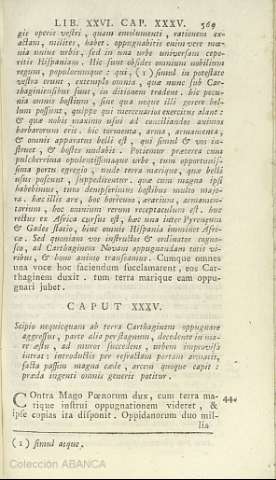 LIB. XXVI. CAP. XXXV. 569
gis operis vestri, quam emolumenti, rationem ex-
actam, milites, habet. oppugnabitis enim vere mœ-
nia unius urbis, sed in una urbe universam cepe-
ritis Hispaniam. Hic sunt obsides omnium nobilium
regum, populorumque: qui, (1) simul in potestate
vestra erunt, extemplo omnia, quæ nunc sub Car-
thaginiensibus sunt, in ditionem tradent. hic pecu-
nia omnis hostium, sine qua neque illi gerere bel-
lum possunt, quippe qui mercenarios exercitus alant:
& quæ nobis maximo usui ad conciliandos animos
barbarorum erit. hic tormenta, arma, armamenta,
& omnis apparatus belli est, qui simul & vos in-
struet, & hostes nudabit. Potiemur præterea cum
pulcherrima opulentissimaque urbe, tum opportunis-
sima portu egregio, unde terra marique, quæ belli
usus poscunt, suppeditentur. quæ cum magna ipsi
habebimus, tum dempserimus hostibus multo majo-
ra. hæc illis arx, hoc horreum, ærarium, armamen-
tarium, hoc omnium rerum receptaculum est. huc
rectus ex Africa cursus est, hæc una inter Pyrenæum
& Gades statio, hinc omnis Hispania imminet Afri-
cæ. Sed quoniam vos instructos & ordinatos cogno-
sco, ad Carthaginem Novam oppugnandam totis vi-
ribus, & bono animo transeamus. Cumque omnes
una voce hoc faciendum succlamarent, eos Car-
thaginem duxit. tum terra marique eam oppu-
gnari jubet.
CAPUT XXXV.
Scipio nequicquam ab terra Carthaginem oppugnare
aggressus, parte alia per stagnum, decedente in ma-
re æstu, ad muros succedens, urbem improvisa
intrat: introductis per refractam portam armatis,
facta passim magna cæde, arcem quoque capit:
præda ingenti omnis generis potitur.
Contra Mago Pœnorum dux, cum terra ma- 44.
rique instrui oppugnationem videret, &
ipse copias ita disponit. Oppidanorum duo mil-
lia
(1) simul atque.
Colección ABANCA